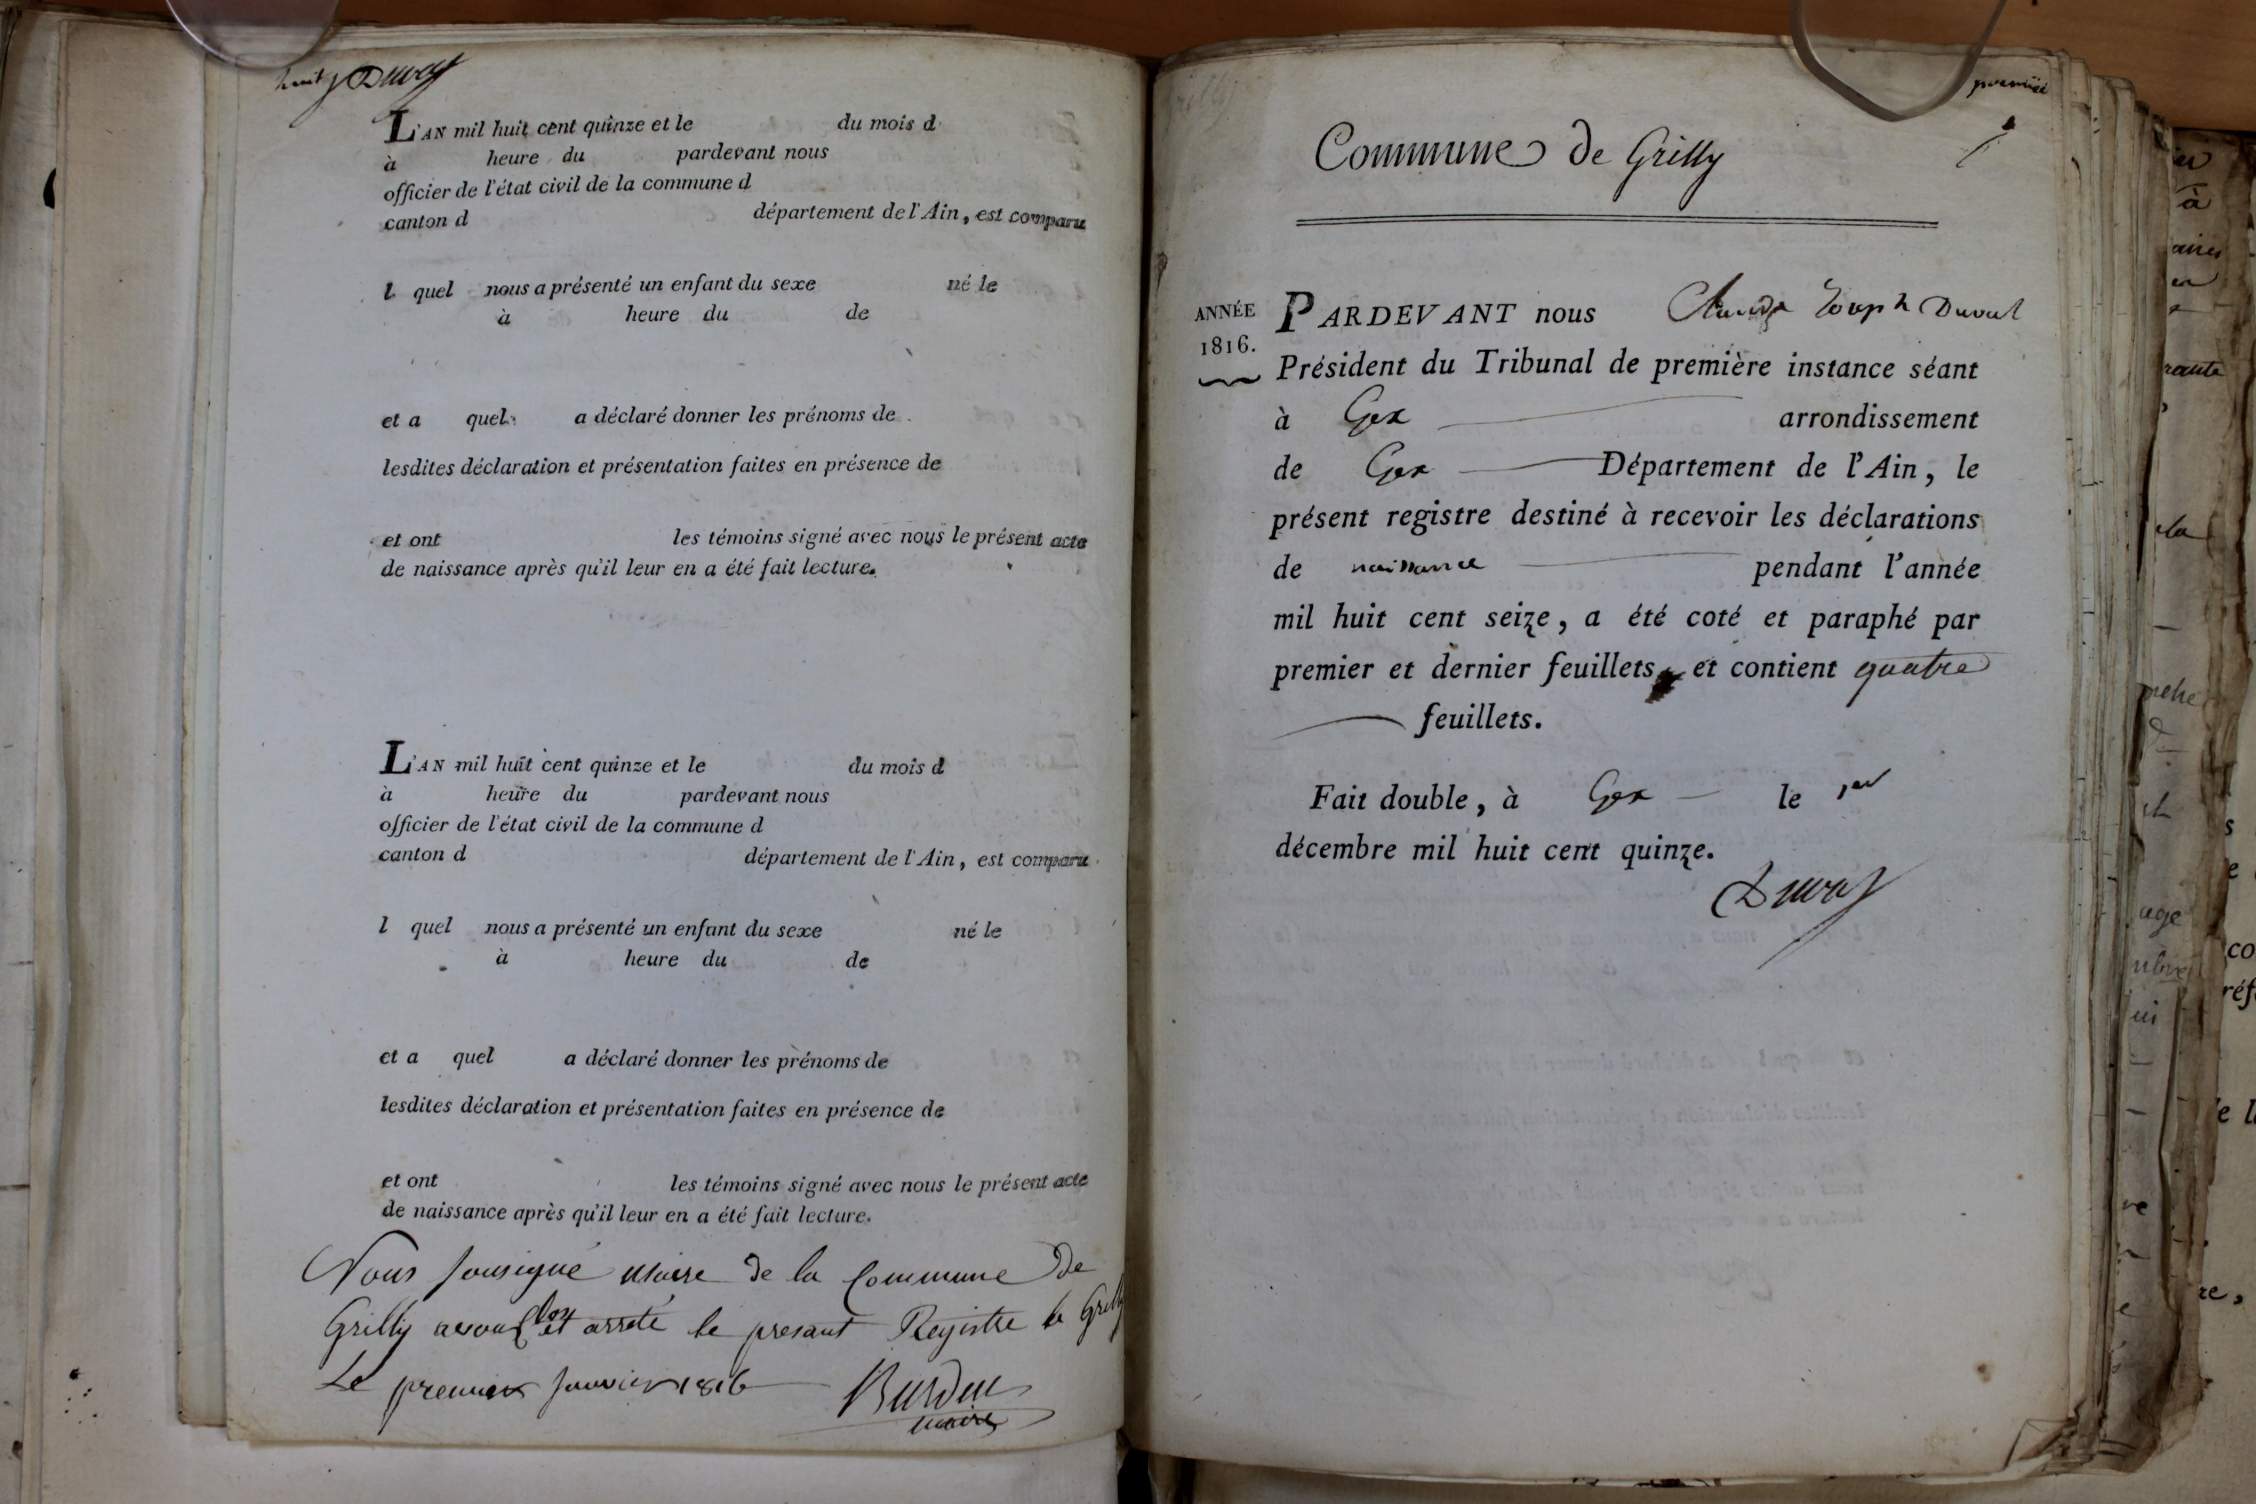 huit Duval
L'AN mil huit cent quinze et le du mois d
à heure du pardevant nous
officier de l'état civil de la commune d
canton d département de l'Ain, est comparu
l quel nous a présenté un enfant du sexe né le
à heure du de
et a quel a déclaré donner les prénoms de
lesdites déclaration et présentation faites en présence de
et ont les témoins signé avec nous le présent acte
de naissance après qu'il leur en a été fait lecture.
L'AN mil huit cent quinze et le du mois d
à heure du pardevant nous
officier de l'état civil de la commune d
canton d département de l'Ain, est comparu
l quel nous a présenté un enfant du sexe né le
à heure du de
et a quel a déclaré donner les prénoms de
lesdites déclaration et présentation faites en présence de
et ont les témoins signé avec nous le présent acte
de naissance après qu'il leur en a été fait lecture.
Nous sousigné Maire de la Commune de
Grilly avons clos et arrété le presant Registre à Grilly
Le premier Janvier 1816 Burdet
maire
premier
1
Commune de Grilly
ANNÉE
1816.
PARDEVANT nous Claude Joseph Duval
Président du Tribunal de première instance séant
à Gex arrondissement
de Gex Département de l'Ain, le
présent registre destiné à recevoir les déclarations
de naissance pendant l'année
mil huit cent seize, a été coté et paraphé par
premier et dernier feuillets, et contient quatre
feuillets.
Fait double, à Gex le 1er
décembre mil huit cent quinze.
Duval